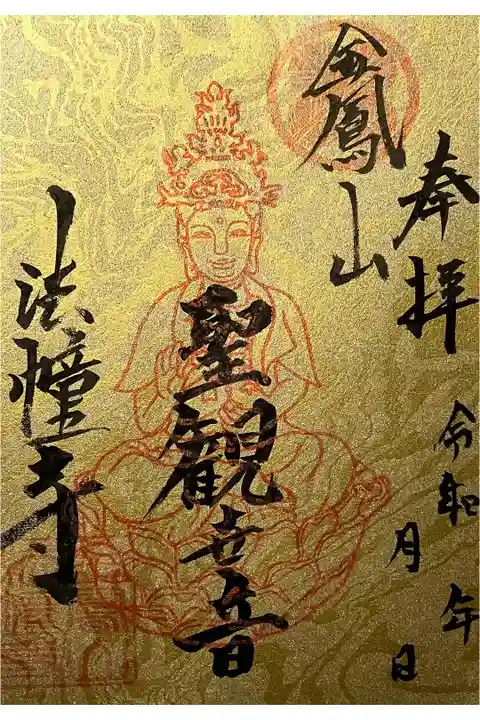 奉拝
令和 年
月 日
金鳳山
聖観世音
法幢寺